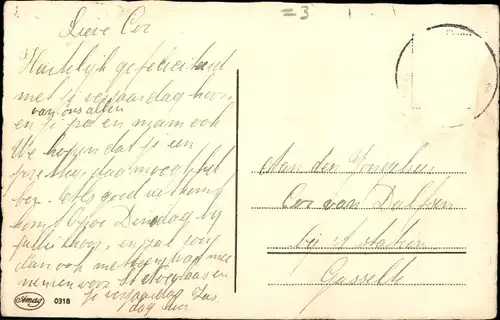 =3
Lieve Cor
Hartelijk gefeliciteerd
met je verjaardag hoor
van ons allen
en je pa en mam ook
We hopen dat je een
prettige dag moogt heb
ben. Als goed is komt
komt Opoe Dinsdag bij
jullie hoor, en zal jou
dan ook met een mee
nemen voor St Nicolaas en
je verjaardag
dag hoor
Aan den Jongeheer
Cor van Dalfsen
bij 't station
Gasselte
Amag 0318